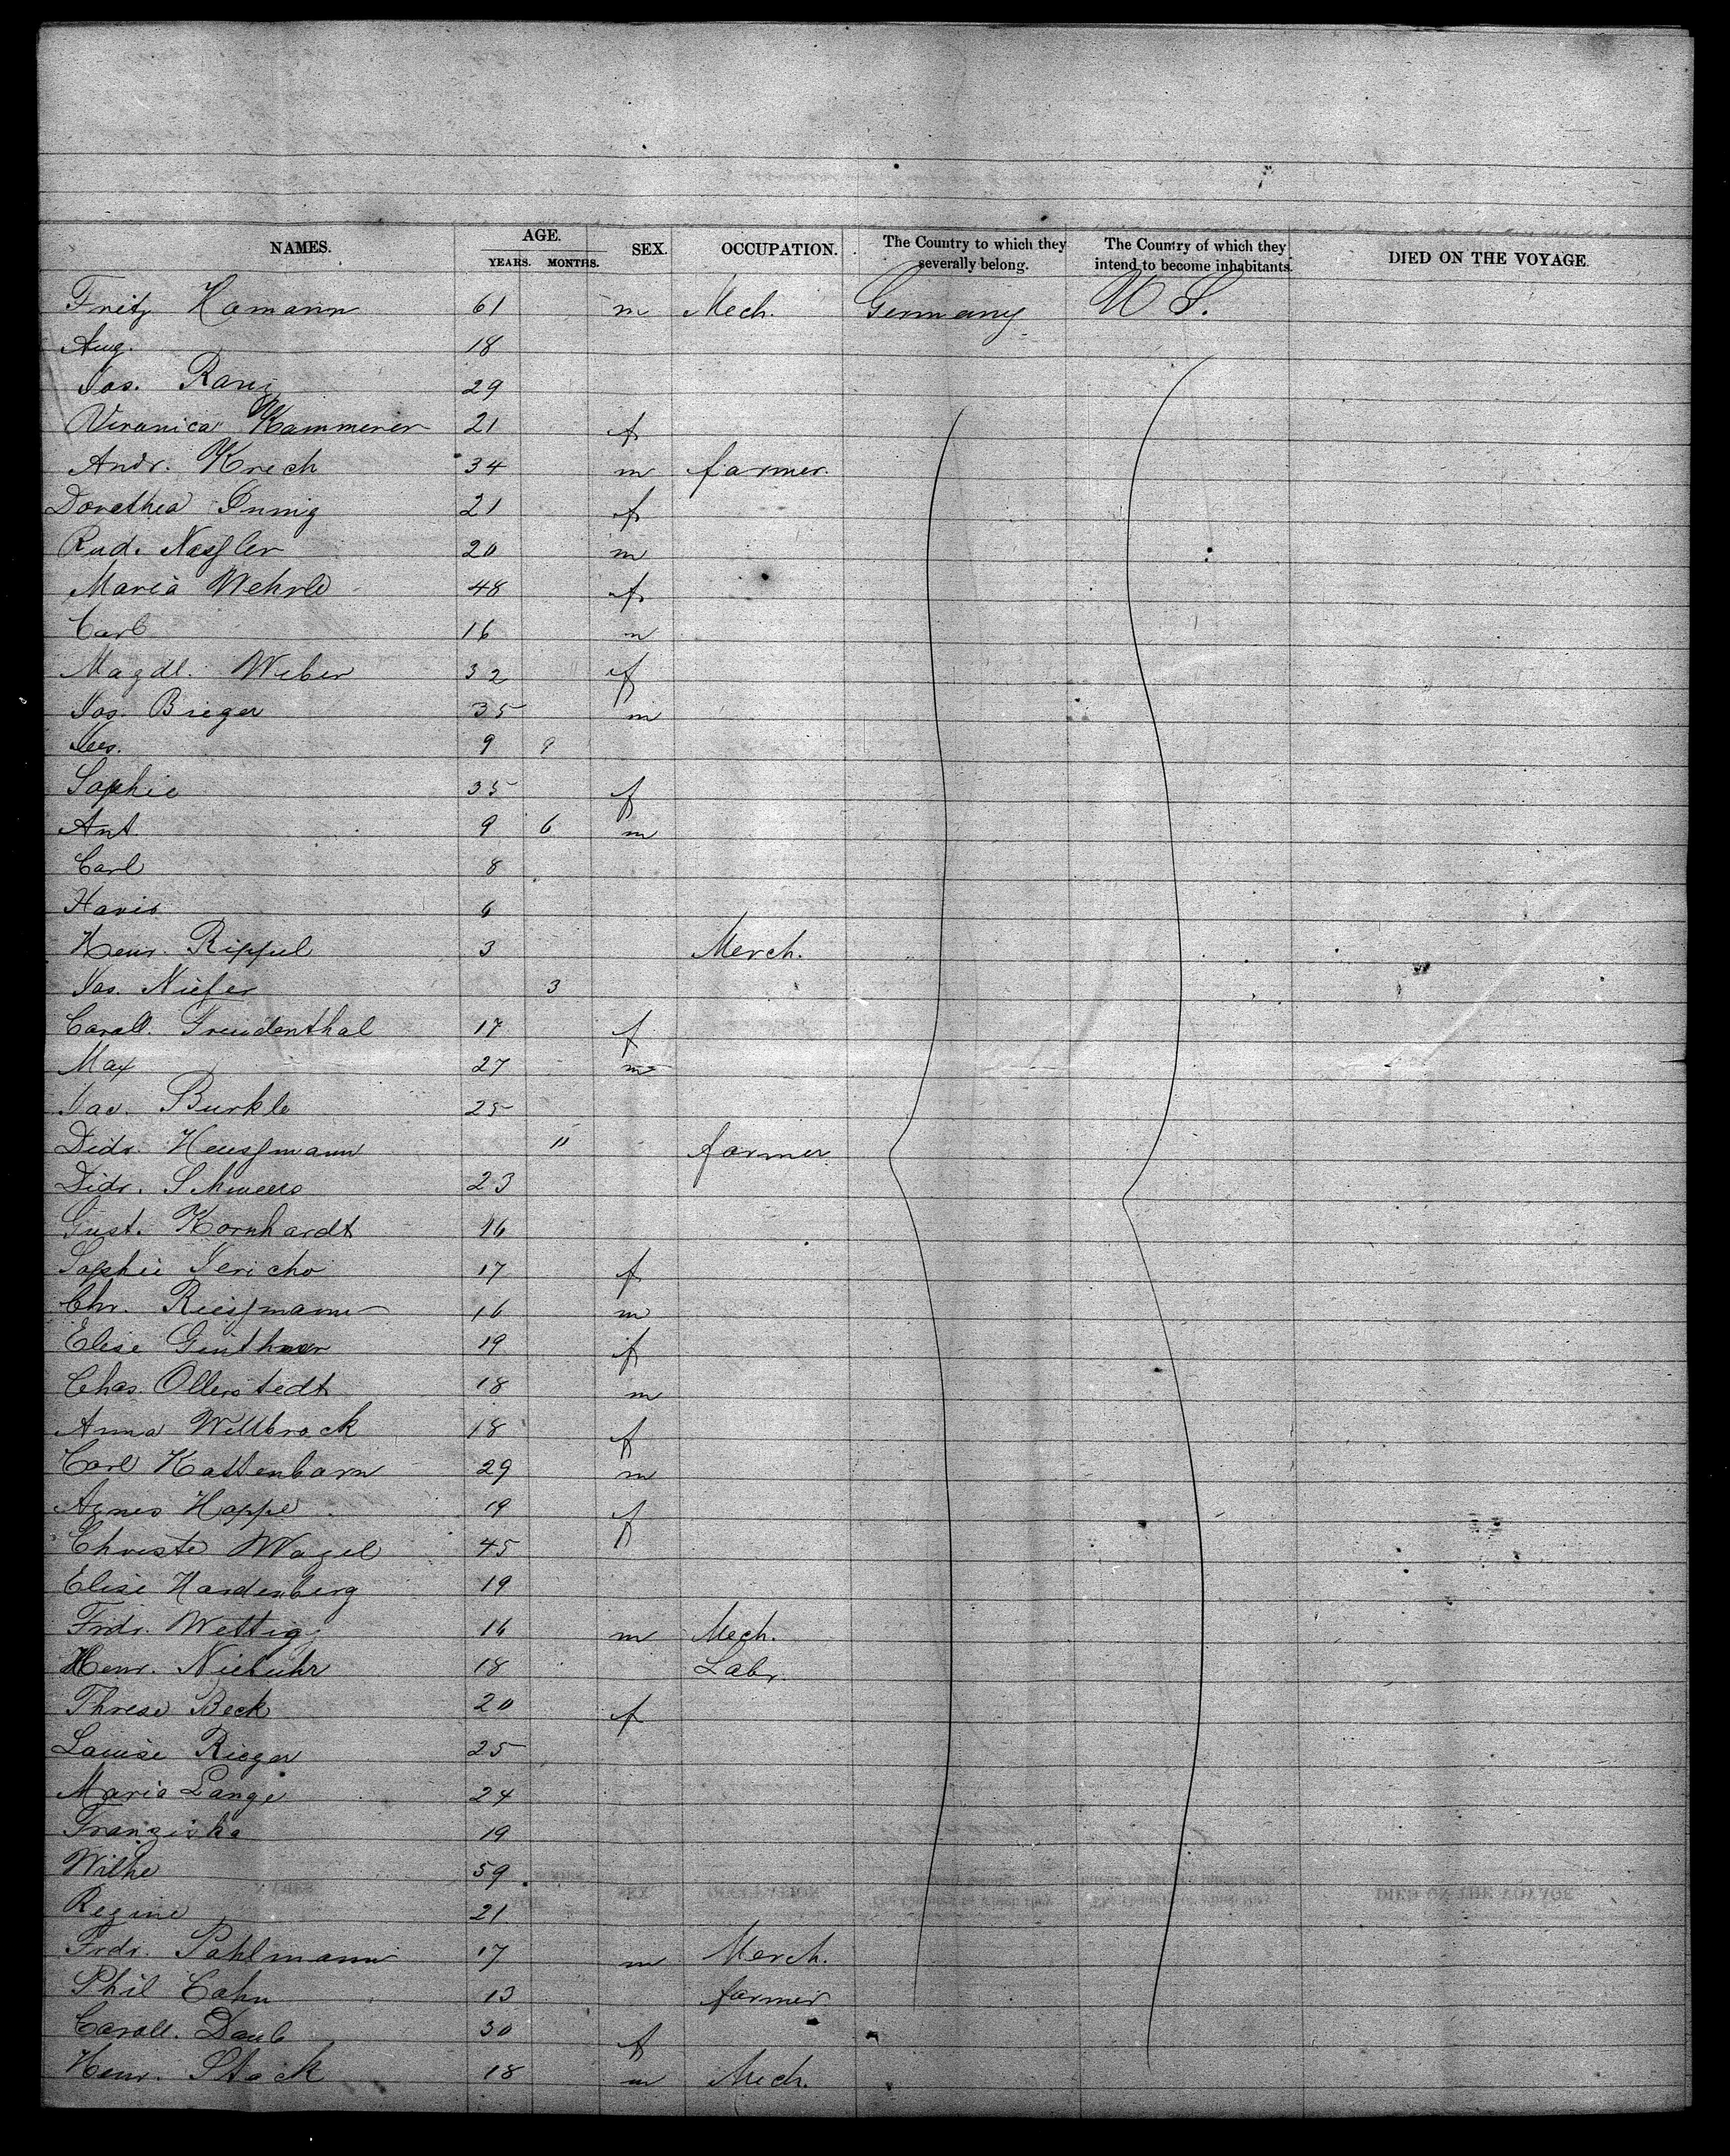 NAMES. AGE. YEARS. MONTHS. SEX. OCCUPATION. The Country to which they severally belong. The Country of which they intend to become inhabitants. DIED ON THE VOYAGE
Fritz Hamann 61 m Mech. Germany U S.
Aug. 18
Jos. Rang 29
Viranica Kammerer 21 f
Andr. Krech 34 m farmer.
Dorethea 21 f
Rud. Nassler 20 m
Maria Wehrle 48 f
Carl 16 m
Magdl. Weber 32 f
Jos. Brieger 35 m
9 9
Sophie 35 f
Ant. 9 6 m
Carl 8
6
Henr. Rippel 3 Merch.
Jos. Niefer 3
Caroll. Freudenthal 17 f
Max 27 m
Jac. Burkle 25
Didr. Heussmann 11 farmer
Didr. Schweers 23
Gust. Kornhardt 16
Sophie Jericho 17 f
Chr. Riessmann 16 m
Elise Ginther 19 f
Chas. Ollerstedt 18 m
Anna Willbrock 18 f
Carl Kattenbarn 29 m
Agnes Hoppe 19 f
Christe Wagel 45
Elise Hardenberg 19
Frdr. Wettig 16 m Mech.
Henr. Niebuhr 18 Labr.
Threse Beck 20 f
Louise Rieger 25
Maria Lange 24
Franziska 19
Wilhe 59
Regine 21
Frdr. Pahlmann 17 m Merch.
Phil Cahn 13 farmer
Caroll. Daub 30 f
Henr. Stock 18 m Mech.